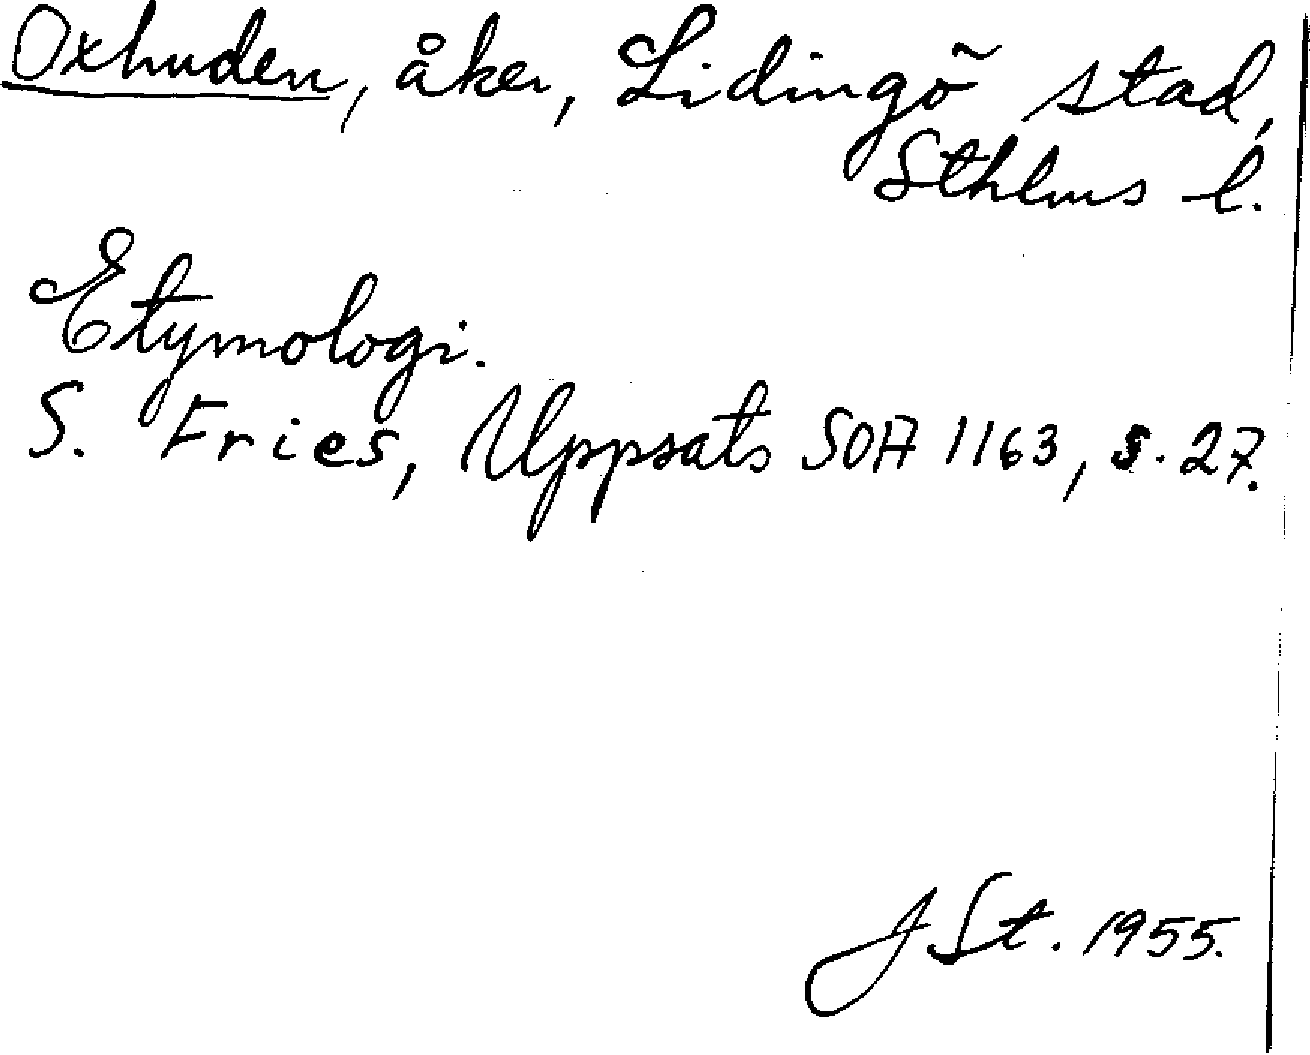 Oxhuden, åker, Lidingö stad,
Sthlms l.
Etymologi.
S. Fries, Uppsats SOA 1163, s. 27.
J St. 1955.